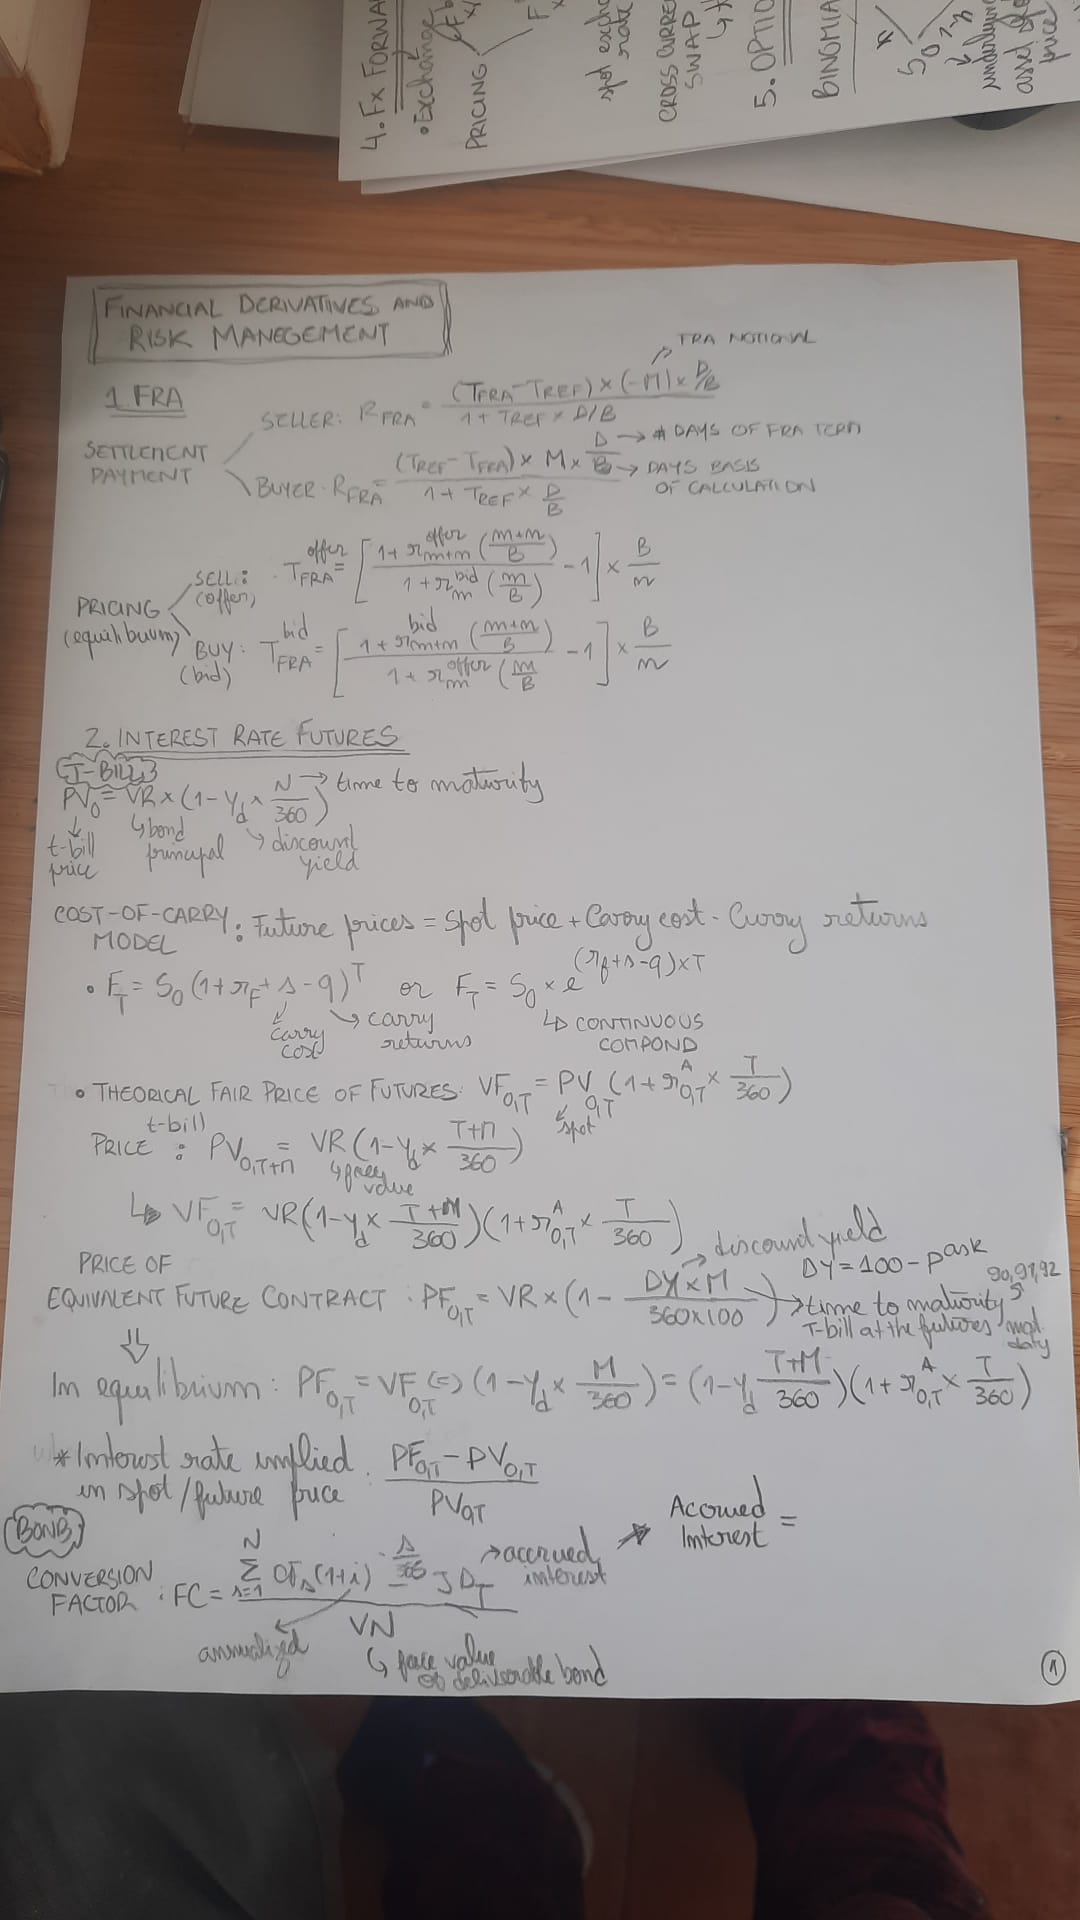 4. FX FORWA
• Exchange
PRICING
spot exch
rate
CROSS CURRE
SWAP
5. OPTIO
BINOMIA
S0
underlying
asset
price
FINANCIAL DERIVATIVES AND
RISK MANEGEMENT
1. FRA
→ FRA NOTIONAL
SETTLEMENT PAYMENT
SELLER: RFRA = (TFRA - TREF) × (-M) × D/B / 1 + TREF × D/B
D → # DAYS OF FRA TERM
BUYER: RFRA = (TREF - TFRA) × M × D/B / 1 + TREF × D/B
B → DAYS BASIS OF CALCULATION
PRICING (equilibrium)
SELL: (offer) TFRA^offer = [ 1 + r^offer m+n (m+n/B) / 1 + r^bid m (m/B) - 1 ] × B/n
BUY: (bid) TFRA^bid = [ 1 + r^bid m+n (m+n/B) / 1 + r^offer m (m/B - 1 ] × B/n
2. INTEREST RATE FUTURES
T-BILLS
PV0 = VR × (1 - yd × N/360) → time to maturity
t-bill price
↳ bond principal
↘ discound yield
COST-OF-CARRY MODEL : Future prices = Spot price + Carry cost - Curry returns
• FT = S0 (1 + rF + s - q)^T or FT = S0 × e^(rf+s-q)×T
carry cost
→ carry returns
↳ CONTINUOUS COMPOND
• THEORICAL FAIR PRICE OF FUTURES: VF0,T = PV0,T (1 + r^A 0,T × T/360)
spot
t-bill
PRICE : PV0,T+M = VR (1 - yd × T+M/360)
↳ face value
↳ VF0,T = VR (1 - yd × T+M/360)(1 + r^A 0,T × T/360)
→ discound yield
DY = 100 - P^ask
90, 91, 92
PRICE OF
EQUIVALENT FUTURE CONTRACT : PF0,T = VR × (1 - DY × M / 360 × 100) → time to maturity
T-bill at the futures mat. daty
⇓
In equilibrium: PF0,T = VF0,T (=) (1 - yd × M/360) = (1 - yd T+M/360)(1 + r^A 0,T × T/360)
* Interest rate implied in spot/future price : PF0,T - PV0,T / PV0,T
BOND
Accrued Interest =
CONVERSION FACTOR : FC = Σ N s=1 CFs (1+i)^-s/365 - JDT / VN
→ accrued interest
annualized
↳ face value of deliverable bond
1